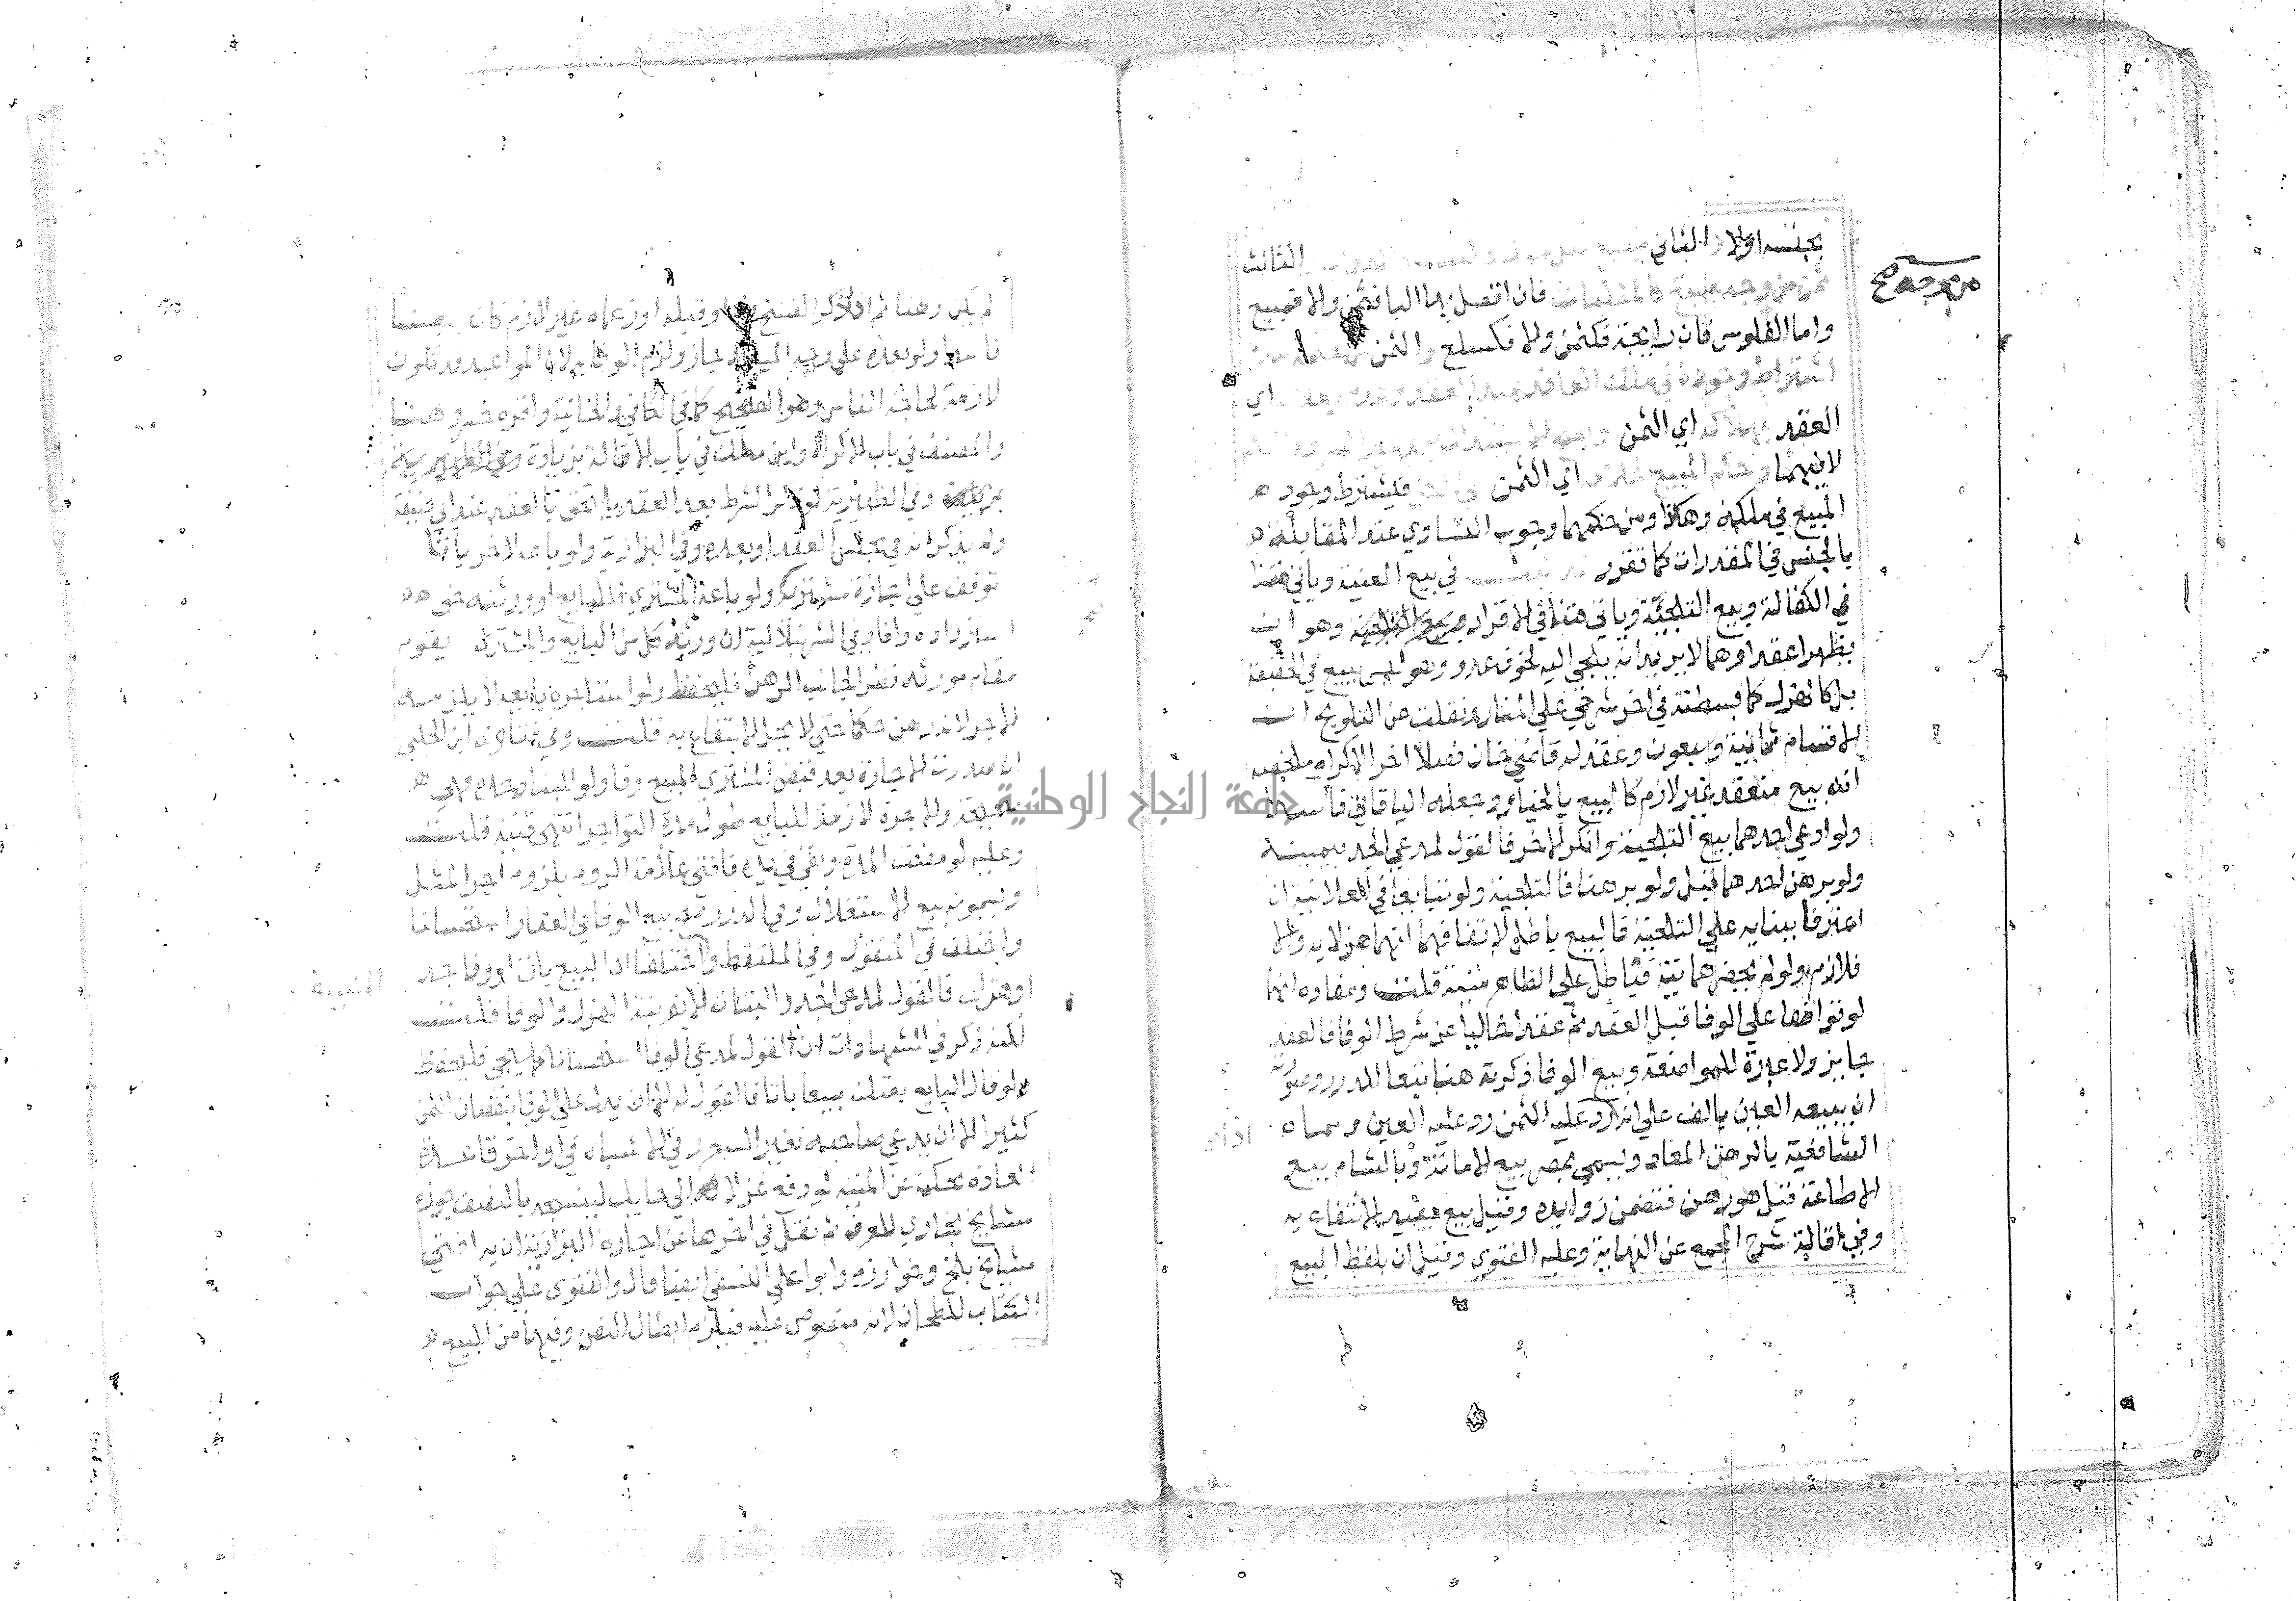 بجنسه اولا الثاني مبيع الثالث
ثمن من وجه مبيع كالمثليات فان اتصل بها البا فثمن والا فمبيع
من وجه صح
واما الفلوس فان رايجة فكثمن والا فكسلع والثمن
اشتراط وجوده في ملك العاقد عند العقد اي
العقد بهلاكه اي الثمن
لا فيهما وحكم المبيع خلافه اي الثمن فيشترط وجود
المبيع في ملكه وهكذا ومن حكمهما وجوب التساوي عند المقابلة
بالجنس في المقدرات كما تقرر في بيع العينة وياتي متنا
في الكفالة وبيع التلجئة وياتي متنا في الاقرار وهو ان
يظهرا عقدا وهما لا يريدانه يلجي اليه لخوف عدو وهو ليس ببيع في الحقيقة
بل كالهزل كما بسطته في اخر شرحي علي المنار ونقلت عن التلويح ان
الاقسام ثمانية وسبعون وعقد له قاضي خان فصلا اخر الاكراه ملخصه
انه بيع منعقد غير لازم كالبيع بالخيار وجعله الباقاني فاسدا
ولو ادعي احدهما بيع التلجئة وانكر الاخر فالقول لمدعي الجد بيمينه
ولو برهن احدهما قبل ولو برهنا فالتلجئة ولو تبايعا في العلانية ان
اعترفا ببنايه علي التلجئة فالبيع باطل لاتفاقهما انهما هزلا به والا
فلازم ولو لم يحضرهما نية فباطل علي الظاهر منية قلت ومفاده انهما
لو تواضعا علي الوفا قبل العقد ثم عقدا خاليا عن شرط الوفا فالعقد
جايز ولا عبرة للمواضعة وبيع الوفا ذكرته هنا تبعا للدرر وصورته
ان يبيعه العين بالف علي انه رد عليه الثمن رد عليه العين وسماه
اذا
الشافعية بالرهن المعاد ويسمي بمصر بيع الامانة وبالشام بيع
الاطاعة قيل هو رهن فتضمن زوايده وقيل بيع يفيد الانتفاع به
وفي اقالة شرح المجمع عن النهاية وعليه الفتوي وقيل ان بلفظ البيع
لم يكن رهنا ثم ان ذكرا الفسخ فيه او قبله او زعماه غير لازم كان بيعا
فاسدا ولو بعده علي وجه الميعاد جاز ولزم الوفا به لان المواعيد قد تكون
لازمة لحاجة الناس وهو الصحيح كما في الكافي والخانية واقره خسرو هنا
والمصنف في باب الاكراه وابن ملك في باب الاقالة بزيادة
وفي الظهيرية لو ذكر الشرط بعد العقد يلتحق بالعقد عند ابي حنيفة
ولم يذكر انه في مجلس العقد او بعده وفي البزازية ولو باعه لاخر باتا
توقف علي اجازة مشتريه ولو باعه المشتري فللبايع او ورثته حق
استرداده وافاد في الشرنبلالية ان ورثة كل من البايع والمشتري يقوم
مقام مورثه نظرا لجانب الرهن فليحفظ ولو استاجره بايعه لا يلزمه
الاجر لانه رهن حكما حتي لا يحل الانتفاع به قلت وفي فتاوي ابن الحلبي
ان صدرت الاجارة بعد قبض المشتري المبيع وفا ولو للبنا وحده فهي
صحيحة والاجرة لازمة للبايع طول مدة التواجر انتهي فتنبه قلت
وعليه لو مضت المدة وبقي في يده فافتي علامة الروم بلزوم اجر المثل
ويسمونه بيع الاستغلال وفي الدرر صح بيع الوفا في العقار استحسانا
واختلف في المنقول وفي الملتقط والمنية اختلفا ان البيع بات او وفا جد
المنية
او هزل فالقول لمدعي الجد والبتات الا بقرينة الهزل والوفا قلت
لكنه ذكر في الشهادات ان القول لمدعي الوفا استحسانا كما سيجي فليحفظ
ولو قال البايع بعتك بيعا باتا فالقول له الا ان يدل علي الوفا بنقصان الثمن
كثيرا الا ان يدعي صاحبه تغير السعر وفي الاشباه في اواخر قاعدة
العادة محكمة عن المنية لو دفع غزلا الي حايك لينسجه بالنصف جوزه
مشايخ بخاري للعرف ثم نقل في اخرها عن اجارة البزازية ان به افتي
مشايخ بلخ وخوارزم وابو علي النسفي ايضا قال والفتوي علي جواب
الكتاب للطحان لانه منصوص عليه فيلزم ابطال النص وفيها من البيع
جامعة النجاح الوطنية